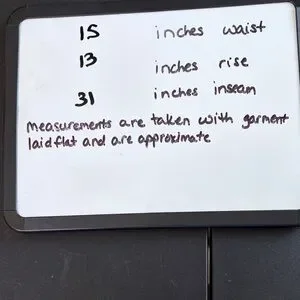 15 inches waist
13 inches rise
31 inches inseam
measurements are taken with garment
laid flat and are approximate